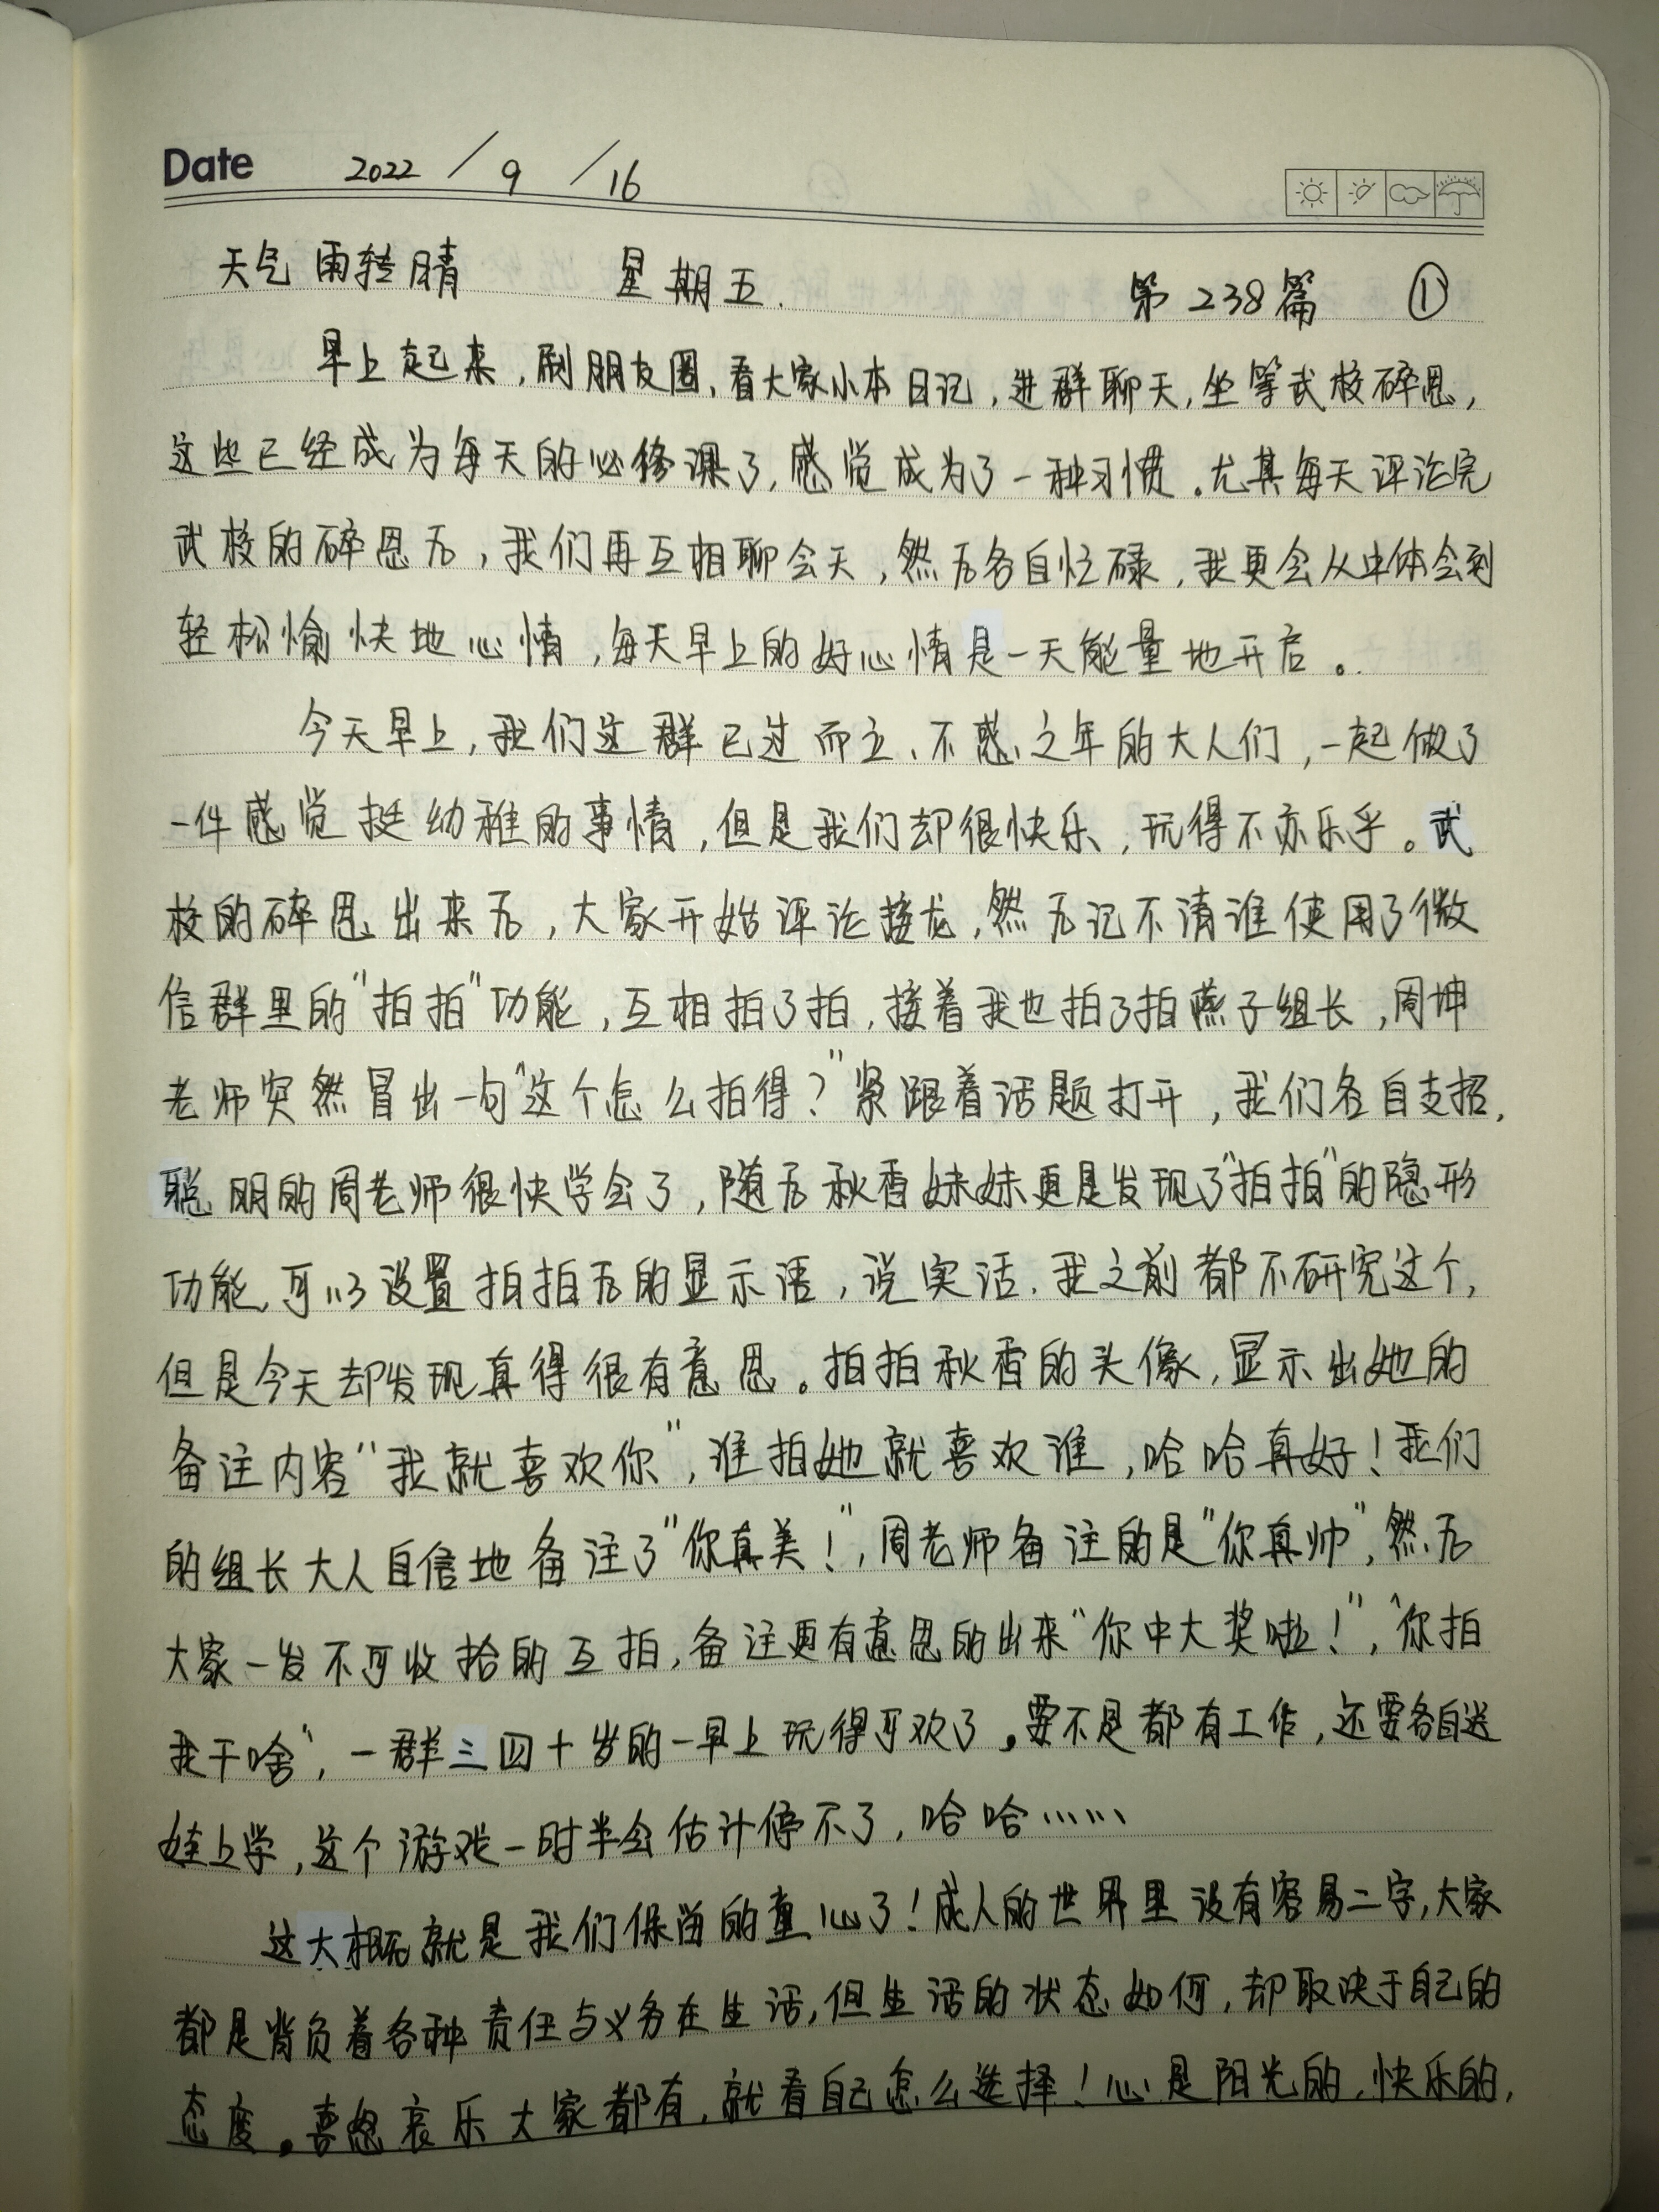 Date 2022 / 9 / 16
天气 雨转晴 星期五. 第238篇 ①
早上起来,刷朋友圈,看大家小本日记,进群聊天,坐等武校碎思,
这些已经成为每天的必修课了,感觉成为了一种习惯。尤其每天评论完
武校的碎思后,我们再互相聊会天,然后各自忙碌,我更会从中体会到
轻松愉快地心情,每天早上的好心情是一天能量地开启。
今天早上,我们这群已过而立、不惑之年的大人们,一起做了
一件感觉挺幼稚的事情,但是我们却很快乐,玩得不亦乐乎。武
校的碎思出来后,大家开始评论接龙,然后记不清谁使用了微
信群里的“拍拍”功能,互相拍了拍,接着我也拍了拍燕子组长,周坤
老师突然冒出一句“这个怎么拍得?”紧跟着话题打开,我们各自支招,
聪明的周老师很快学会了,随后秋香妹妹更是发现了“拍拍”的隐形
功能,可以设置拍拍后的显示语,说实话,我之前都不研究这个,
但是今天却发现真得很有意思。拍拍秋香的头像,显示出她的
备注内容“我就喜欢你”,谁拍她就喜欢谁,哈哈真好!我们
的组长大人自信地备注了“你真美!”,周老师备注的是“你真帅”,然后
大家一发不可收拾的互拍,备注更有意思的出来“你中大奖啦!”,“你拍
我干啥”,一群三四十岁的一早上玩得可欢了。要不是都有工作,还要各自送
娃上学,这个游戏一时半会估计停不了,哈哈……
这大概就是我们保留的童心了!成人的世界里没有容易二字,大家
都是背负着各种责任与义务在生活,但生活的状态如何,却取决于自己的
态度。喜怒哀乐大家都有,就看自己怎么选择!心是阳光的,快乐的,